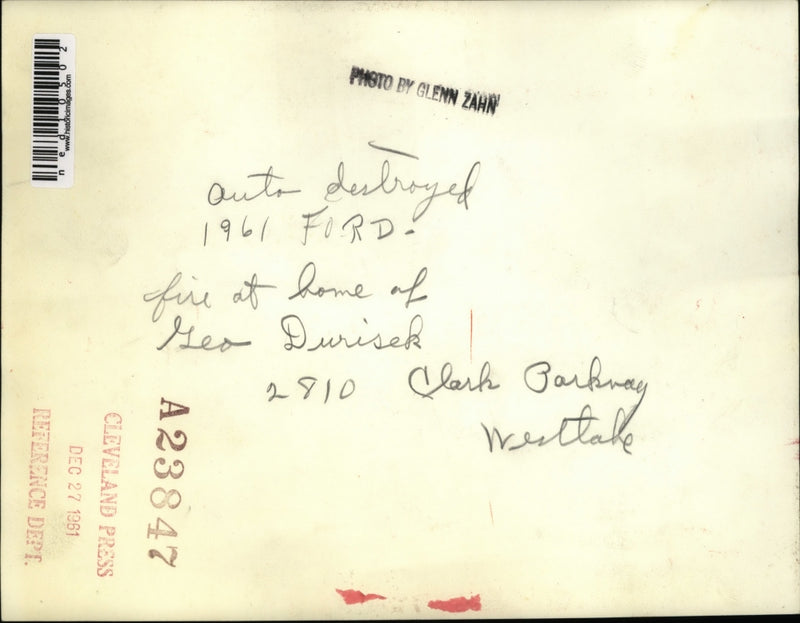 PHOTO BY GLENN ZAHN
auto destroyed
1961 FORD.
fire at home of
Geo Durisek
2810 Clark Parkway
Westlake
A23847
CLEVELAND PRESS
DEC 27 1961
REFERENCE DEPT.
www.historicimages.com
ned10502